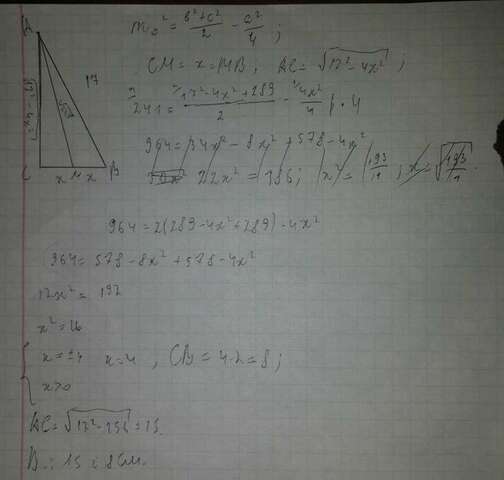 A
17
√241
√17² - 4x²
C x M x B
m_a² = (b² + c²)/2 - a²/4 ;
CM = x = MB, AC = √17² - 4x² ;
241 = (17² - 4x² + 289)/2 - 4x²/4 | · 4
964 = 34x² - 8x² + 578 - 4x²
22x² = 386; x² = 193/11 ; x = √193/11
964 = 2(289 - 4x² + 289) - 4x²
964 = 578 - 8x² + 578 - 4x²
12x² = 192
x² = 16
x = ±4 x = 4, CB = 4·2 = 8;
x > 0
AC = √17² - = 15.
B.: 15 i 8 см.